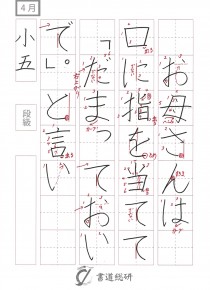 お母さんは
口に指を当てて
「だまっておいて
で」。と言い
小五
4月
段級
書道総研